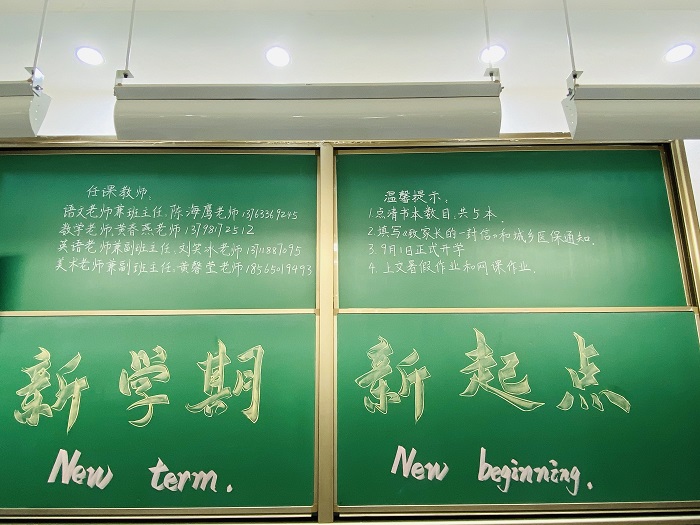 任课教师:
语文老师兼班主任:陈海鹰老师 13763369245
数学老师:黄香燕老师 13798172512
英语老师兼副班主任:刘笑冰老师 13711887095
美术老师兼副班主任:黄馨莹老师 18565019493
温馨提示:
1.点清书本数目,共5本.
2.填写《致家长的一封信》和城乡医保通知.
3.9月1日正式开学
4.上交暑假作业和网课作业.
新学期
New term.
新起点
New beginning.